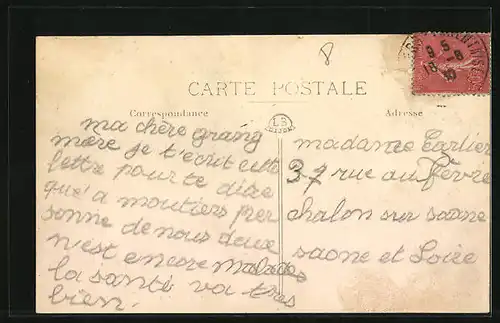 8
CARTE POSTALE
Correspondance
Adresse
LB
ma chère grang
mère je t'ecrit cette
lettre pour te dire
que a moutiers per
sonne de nous deux
n'est encore malades
la santé va très
bien.
madame Carlier
37 rue au Fèvre
chalon sur saone
saone et Loire
9 5 -8
18 10